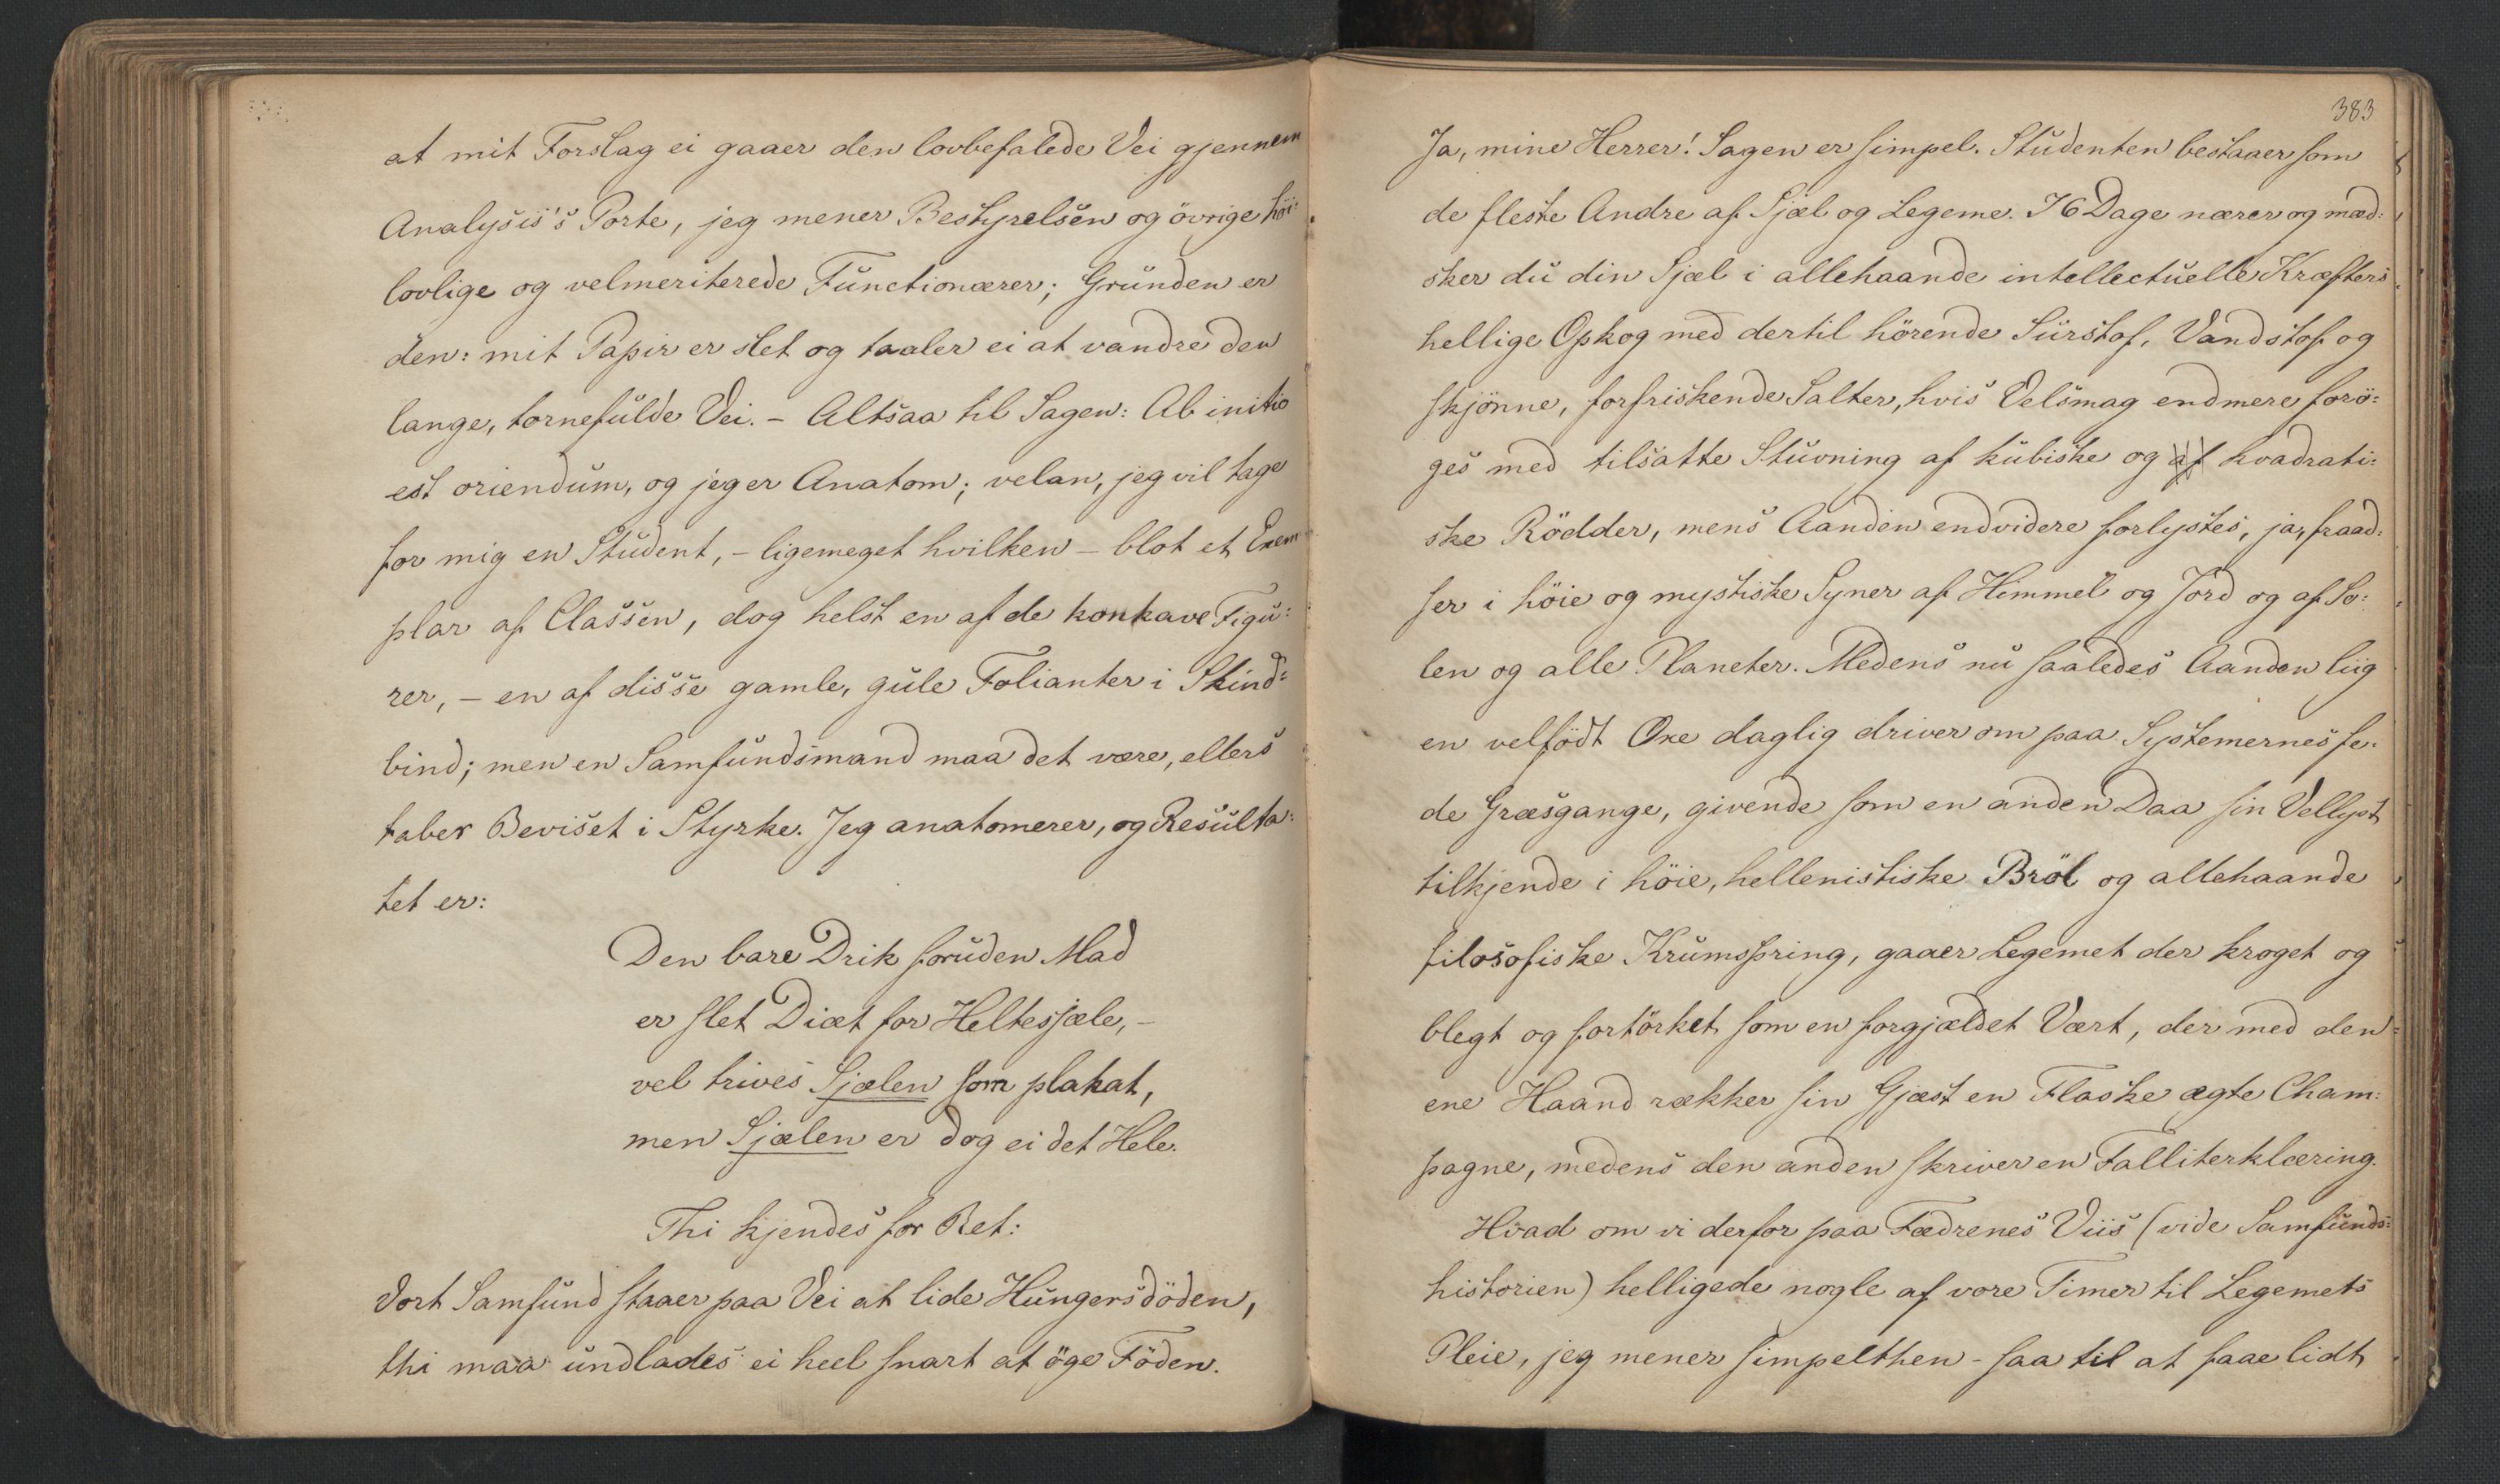 at mit Forslag ei gaaer den lovbefalede Vei gjennem
Analysis's Porte, jeg mener Bestyrelsen og övrige höi-
lovlige og velmeriterede Functionærer; Grunden er
den: mit Papir er slet og taaler ei at vandre den
lange, tornefulde Vei. – Altsaa til Sagen: Ab initio
est oriendum, og jeg er Anatom; velan, jeg vil tage
for mig en Student, – ligemeget hvilken – blot et Exem-
plar af Classen, dog helst en af de konkave Figu-
rer, – en af disse gamle, gule Folianter i Skind-
bind; men en Samfundsmand maa det være, ellers
taber Beviset i Styrke. Jeg anatomerer, og Resulta-
tet er:
Den bare Drik foruden Mad
er slet Diæt for Heltesjæle, –
vel trives Sjælen som plakat,
men Sjælen er dog ei det Hele.
Thi kjendes for Ret:
Vort Samfund staaer paa Vei at lide Hungersdöden,
thi maa undlades ei heel snart at öge Föden.
383
Ja, mine Herrer! Sagen er simpel. Studenten bestaaer som
de fleste Andre af Sjæl og Legeme. I 6 Dage nærer og mæd-
sker du din Sjæl i allehaande intellectuelle Kræfters
hellige Opkog med dertil hörende Surstof, Vandstof og
skjönne, forfriskende Salter, hvis Velsmag endmere forö-
ges med tilsatte Stuvning af kubiske og af kvadrati-
ske Rödder, mens Aanden endvidere forlystes, ja, fraad-
ser i höie og mystiske Syner af Himmel og Jord og af So-
len og alle Planeter. Medens nu saaledes Aanden liig
en velfödt Oxe daglig driver om paa Systemernes fe-
de Græsgange, givende som en anden Daa sin Vellyst
tilkjende i höie, hellenistiske Bröl og allehaande
filosofiske Krumspring, gaaer Legemet der kroget og
blegt og fortörket som en forgjældet Vært, der med den
ene Haand rækker sin Gjæst en Flaske ægte Cham-
pagne, medens den anden skriver en Falliterklæring.
Hvad om vi derfor paa Fædrenes Viis (vide Samfunds-
historien) helligede nogle af vore Timer til Legemets
Pleie, jeg mener simpelthen – saa til at faae lidt